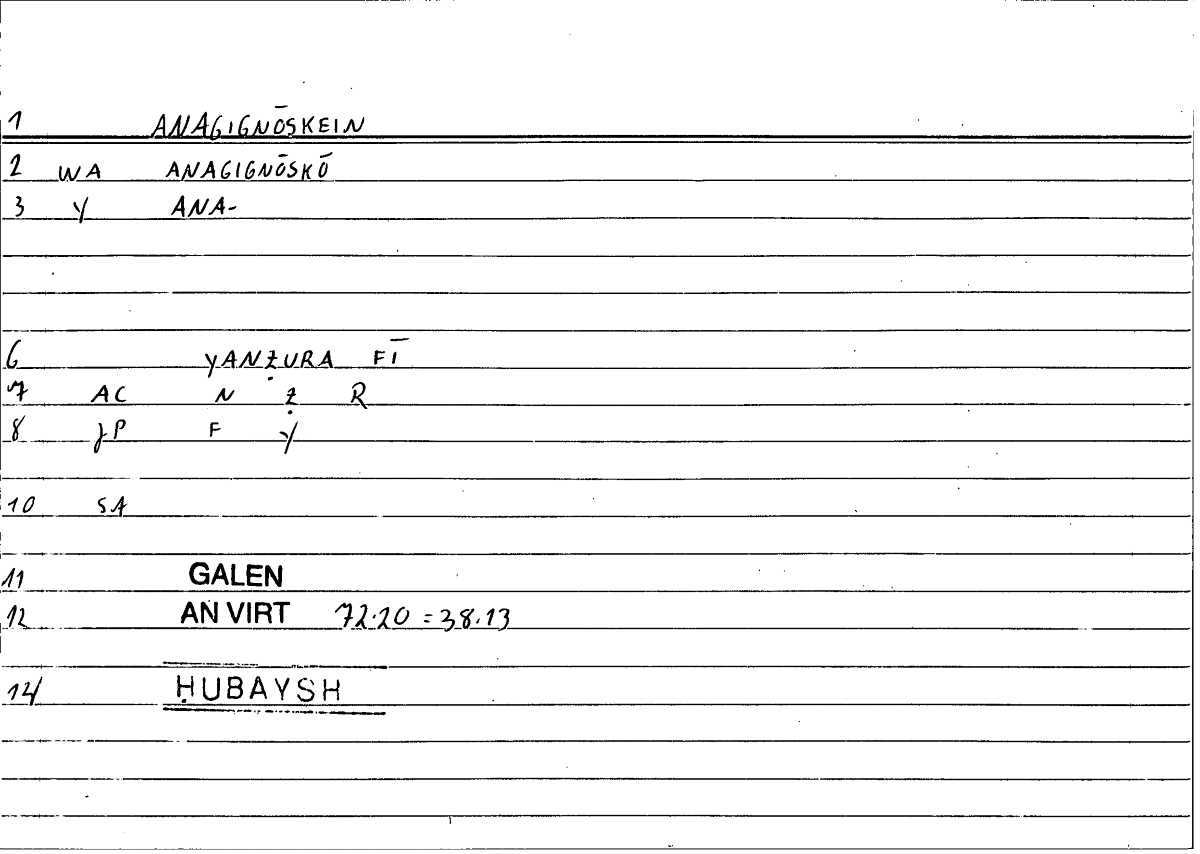 1 ANAGIGNŌSKEIN
2 WA ANAGIGNŌSKŌ
3 Y ANA-
6 YANẒURA FĪ
7 AC N Ẓ R
8 JP F Y
10 SA
11 GALEN
12 AN VIRT 72.20 = 38.13
14 ḤUBAYSH